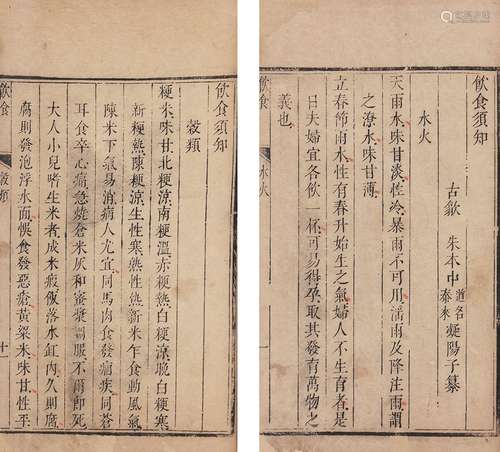 飲食須知
水火
古歙 朱本中 道名泰來 凝陽子纂
天雨水味甘淡性冷暴雨不可用淫雨及降注雨謂
之潦水味甘薄
立春節雨水性有春升始生之氣婦人不生育者是
日夫婦宜各飲一杯可易得孕取其發育萬物之
義也
飲食
水火
一
飲食須知
穀類
粳米味甘北粳涼南粳溫赤粳熱白粳涼晚白粳寒
新粳熱陳粳涼生性寒熟性熱新米乍食動風氣
陳米下氣易消病人尤宜同馬肉食發痼疾同蒼
耳食卒心痛急燒倉米灰和蜜漿調服不爾即死
大人小兒嗜生米者成米瘕飯落水缸內久則腐
腐則發泡浮水面悞食發惡瘡黃粱米味甘性平
飲食
穀類
十一